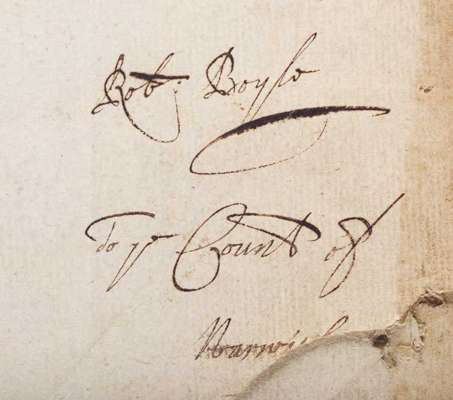 Rob: Boyle
To ye Count of
Warwick